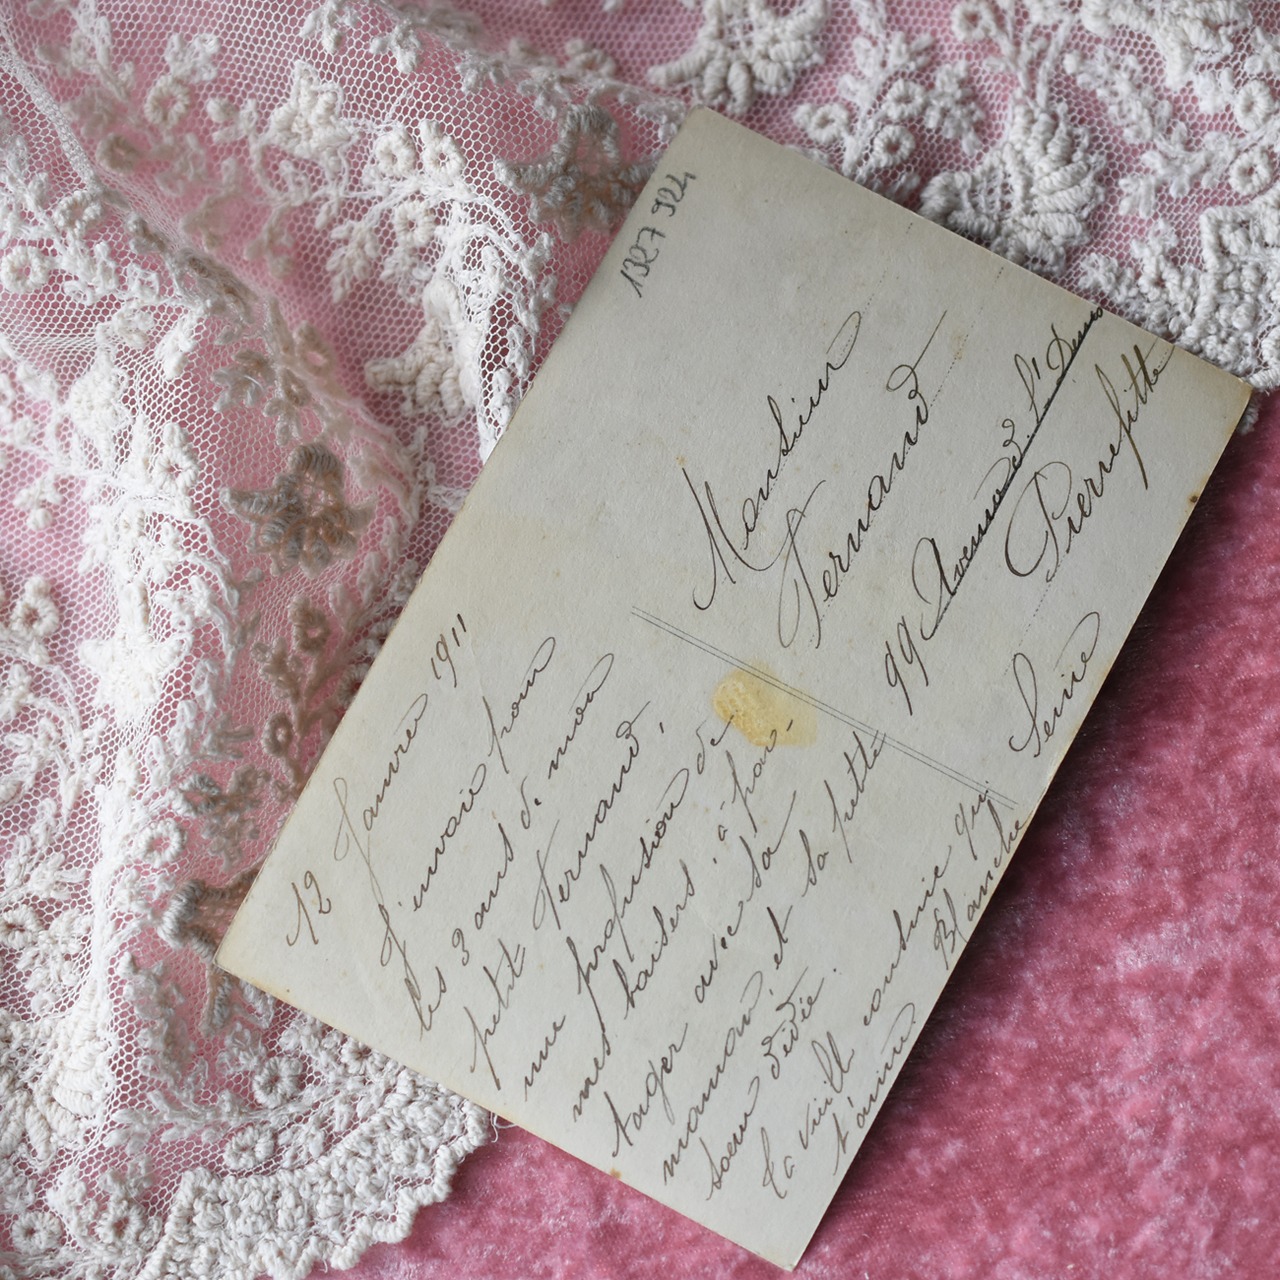 1327 924
12 Janvier 1911
J'envoie pour
les 3 ans de mon
petit Fernand,
une profusion de
mes baisers à par-
tager avec sa
maman, et sa petite
soeur Dédé.
ta vieill cousine qui
t'aime Blanche
Monsieur
Fernand
99 Avenue
Pierrefitte
Seine